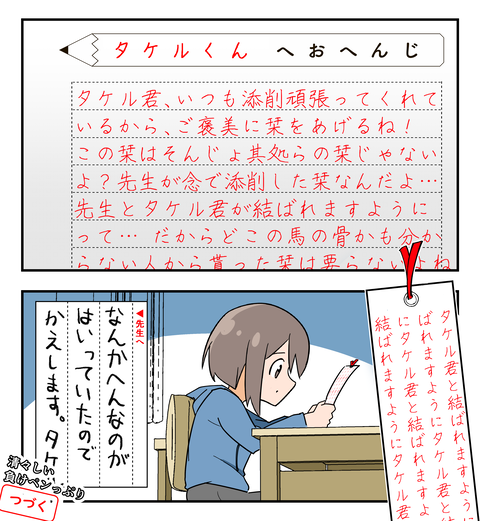 タケルくん へおへんじ
タケル君、いつも添削頑張ってくれて
いるから、ご褒美に栞をあげるね!
この栞はそんじょ其処らの栞じゃない
よ?先生が念で添削した栞なんだよ…
先生とタケル君が結ばれますように
って… だからどこの馬の骨かも分か
らない人から貰った栞は要らないよね
◀先生へ
なんかへんなのが
はいっていたので
かえします。タケ
タケル君と結ばれますように
ばれますようにタケル君と結
にタケル君と結ばれますよ
結ばれますようにタケル君
清々しい
負けペンっぷり
つづく